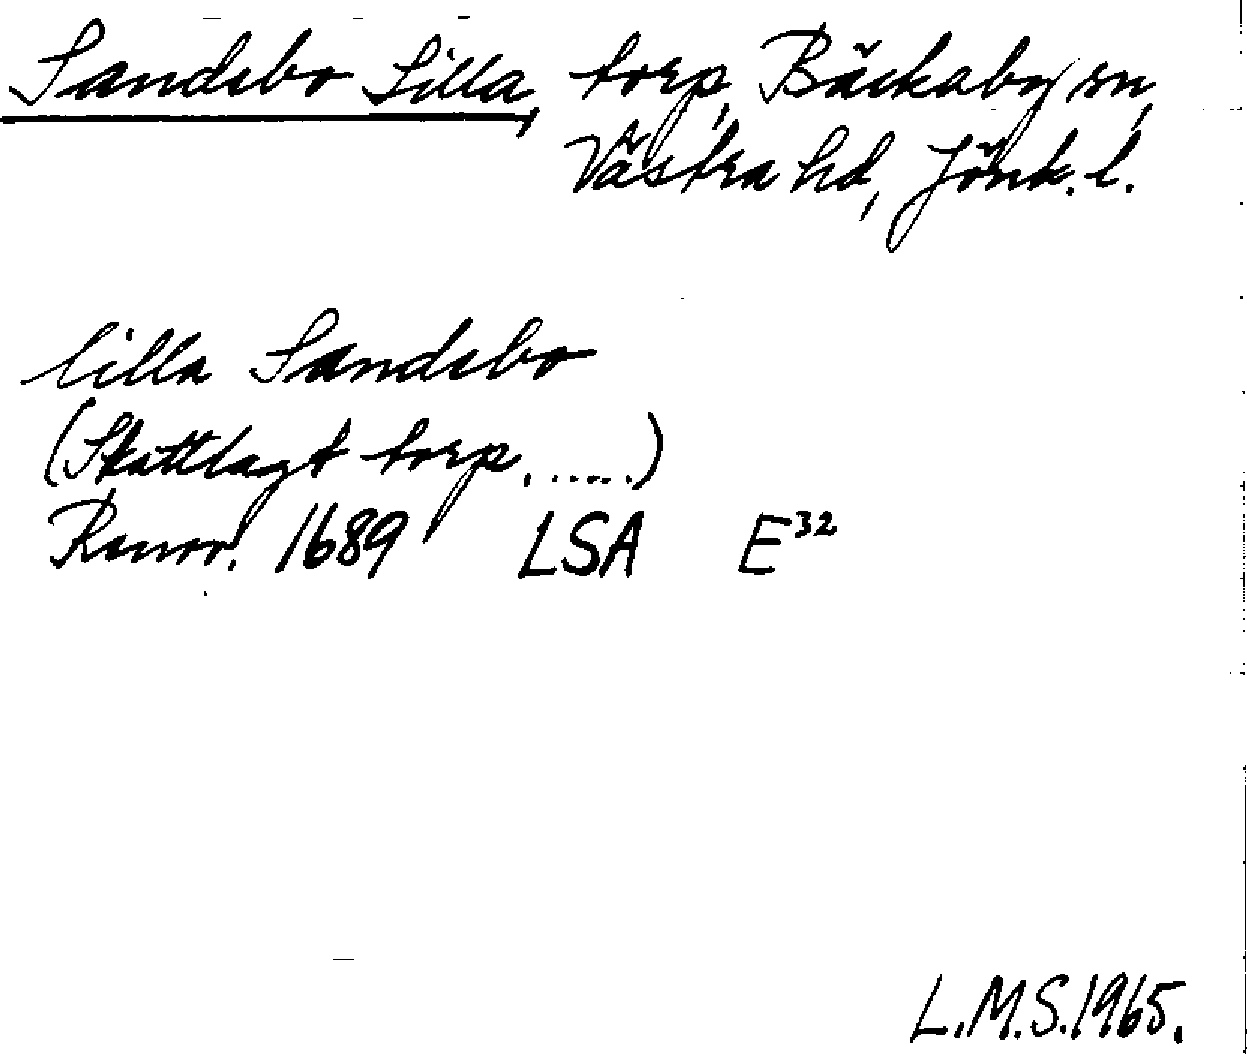 Sandsbo Lilla, torp, Bäckaby sn,
Västra hd, Jönk. l.
lilla Sandsbo
(Skattlagt torp, .....)
Ransr. 1689 LSA E32
L.M.S. 1965.